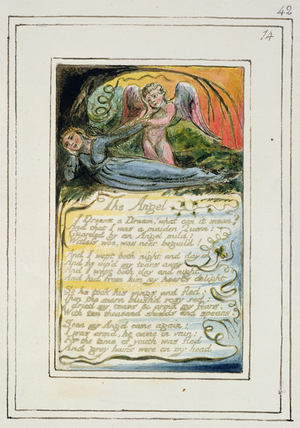 42
14
The Angel
I Dreamt a Dream! what can it mean?
And that I was a maiden Queen:
Guarded by an Angel mild:
Witless woe, was neer beguil'd!
And I wept both night and day
And he wip'd my tears away
And I wept both day and night
And hid from him my hearts delight
So he took his wings and fled:
Then the morn blush'd rosy red:
I dried my tears & armd my fears,
With ten thousand shields and spears.
Soon my Angel came again:
I was arm'd, he came in vain:
For the time of youth was fled
And grey hairs were on my head